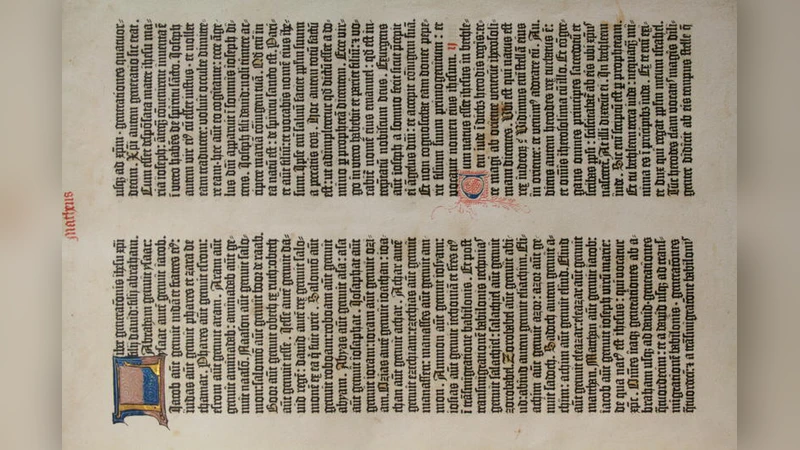 Mattheus
Liber generationis ihesu xp̄i
filii dauid: filii abraham.
Abraham genuit ysaac:
ysaac autē genuit iacob.
Iacob aūt genuit iudā et fratres eiꝰ:
iudas aūt genuit phares et zaram de
thamar. Phares aūt genuit esrom:
esrom aūt genuit aram. Aram aūt
genuit aminadab: aminadab aūt ge-
nuit naasō. Naason aūt genuit salo-
mon: salomō aūt genuit booz de raab.
Booz aūt genuit obeth ex ruth: obeth
aūt genuit iesse. Iesse aūt genuit da-
uid regē: dauid autē rex genuit salo-
monē ex ea q̄ fuit vrie. Salomō aūt
genuit roboam: roboam aūt genuit
abyam. Abyas aūt genuit asa: asa
aūt genuit iosaphat. Iosaphat aūt
genuit ioram: ioram aūt genuit ozi-
am. Ozias aūt genuit ioathan: ioa-
than aūt genuit achaz. Achaz autē
genuit ezechiā: ezechias aūt genuit
manassen: manasses aūt genuit am-
mon. Ammon aūt genuit iosyam:
iosias aūt genuit iechoniā et fr̄es eiꝰ
ī trāsmigratiōe babilonis. Et post
transmigrationē babilonis: iechonias
genuit salathiel: salathiel aūt genuit
zorobabel. Zorobabel aūt genuit abi-
ud: abiud autem genuit eliachim. Eli-
achim aūt genuit azor: azor aūt ge-
nuit sadoch. Sadoch aūt genuit a-
chim: achim aūt genuit eliud. Eliud
aūt genuit eleazar: eleazar aūt genuit
mathan. Matthan aūt genuit iacob:
iacob aūt genuit ioseph virū marie:
de qua natꝰ est ihesus: qui vocatur
xp̄c. Omnes itaq̨ generationes ab a-
braham usq̨ ad dauid · generationes
quatuordecim: et a dauid usq̨ ad trans-
migrationē babilonis · generationes
quatuordecim: et a trāsmigratione babilonis
usq̨ ad xp̄m · generationes quatuor-
decim. Xp̄i autem generatio sic erat.
Cum esset desponsata mater ihesu ma-
ria ioseph, ānteq̄ cōuenirent inuenta ē
i vtero habēs de spiritu sācto. Ioseph
autem vir eiꝰ cū esset iustus · et nollet
eam traducere: voluit occulte dimitte-
re eam. hec aūt eo cogitante: ecce āge-
lus dn̄i apparuit ī sōmnis ioseph di-
cens. Ioseph fili dauid: noli timere ac-
cipere mariā cōiugem tuā. Qd̄ enī in
ea natū est: de spiritu sancto est. Pari-
et aūt filiū: et vocabis nomē eius ihe-
sum. Ipse enī saluū faciet pp̄lm suum
a peccatis eoꝝ. Hoc autem totū factū
est: ut adimpleretur qd̄ dictū est a do-
mino p̲ prophetā dicentem. Ecce vir-
go in vtero habebit et pariet filiū: et vo-
cabitur nomē eius emanuel: qd̄ est in-
terpretatū nobiscum deus. Exurgens
autē ioseph a sōmno: fecit sicut precepit
ei āgelus dn̄i: et accepit cōiugem suā.
Et non cognoscebat eam donec pepe-
rit filium suum primogenitum: et
vocauit nomen eius ihesum. II
Cum natus esset ihesus in bethle-
em iude in diebus herodis regis: ec-
ce magi ab oriente venerūt iherosoli-
mam dicentes. Vbi est qui natus est
rex iudeoꝝ? Vidimus enī stellā eius
in oriente: et venimꝰ adorare eū. Au-
diens autem herodes rex turbatus est:
et omīs iherosolima cū illo. Et cōgre-
gans omēs principes sacerdotū et
scribas ppl̄i: sciscitabatur ab eis ubi xp̄us
nasceret̄. At illi dixerūt ei. In bethleem
iude. Sic enī scriptū est p̲ prophetam.
Et tu bethleem terra iuda: nequaq̄ mi-
nima es in principibꝰ iuda. Ex te enī exi-
et dux qui regat pp̄lm meum israhel.
Tūc herodes clam vocatis magis dili-
genter didicit ab eis tempus stelle q̄